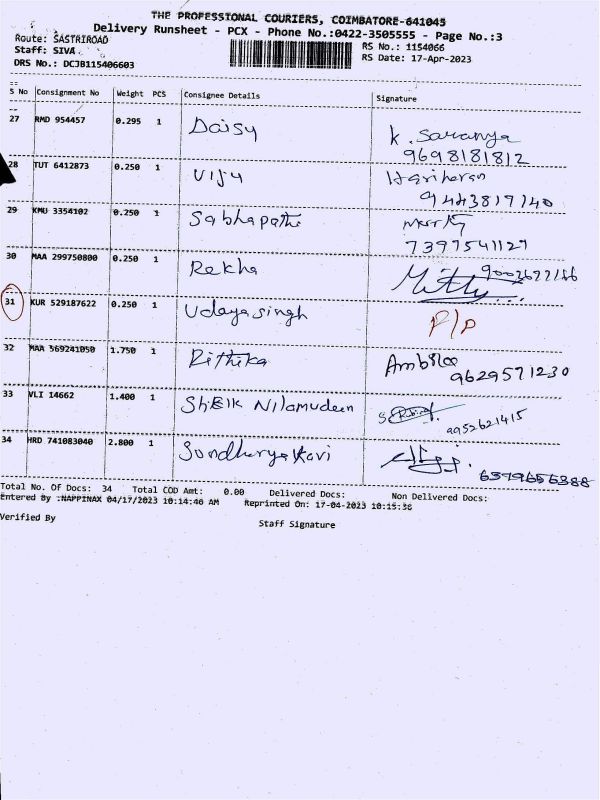 THE PROFESSIONAL COURIERS, COIMBATORE-641045
Delivery Runsheet - PCX - Phone No.:0422-3505555 - Page No.:3
Route: SASTRIROAD
RS No.: 1154066
Staff: SIVA
RS Date: 17-Apr-2023
DRS No.: DCJB115406603
S No Consignment No Weight PCS Consignee Details Signature
27 RMD 954457 0.295 1 Daisy K. Saranya
9698181812
28 TUT 6412873 0.250 1 Viju Hariharan
9443817140
29 KMU 3354102 0.250 1 Sabhapathi
7397541127
30 MAA 299750800 0.250 1 Rekha
31 KUR 529187622 0.250 1 Udaya singh P/D
32 MAA 569241050 1.750 1 Rithika
9629571230
33 VLI 14662 1.400 1 Sheik Nilamudeen
9952621415
34 HRD 741083040 2.800 1 Soundharya Kavi
Total No. Of Docs: 34 Total COD Amt: 0.00 Delivered Docs: Non Delivered Docs:
Entered By :NAPPINAX 04/17/2023 10:14:46 AM Reprinted On: 17-04-2023 10:15:36
Verified By
Staff Signature